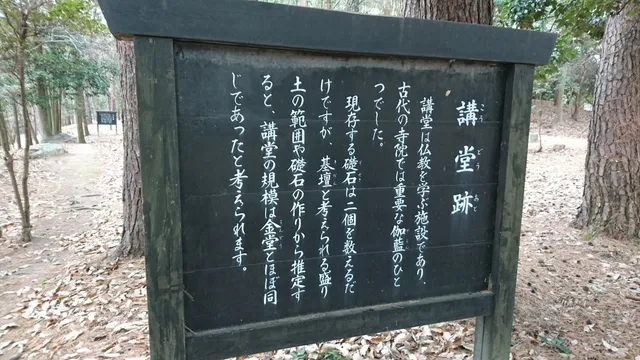 講堂跡
こうどうあと
講堂は仏教を学ぶ施設であり、
古代の寺院では重要な伽藍のひと
つでした。
現存する礎石は二個を数えるだ
けですが、基壇と考えられる盛り
土の範囲や礎石の作りから推定す
ると、講堂の規模は金堂とほぼ同
じであったと考えられます。